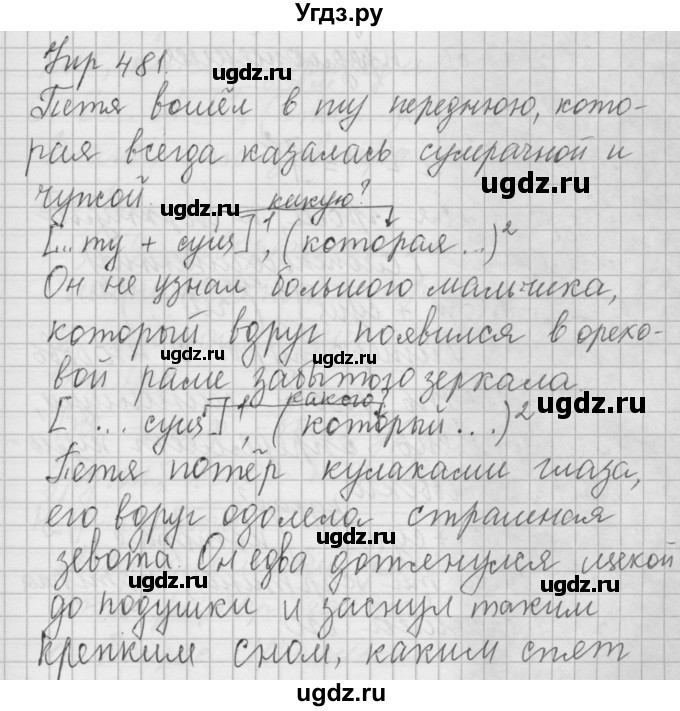 Угдз.ру
Упр 481.
Петя вошёл в ту переднюю, кото-
рая всегда казалась сумрачной и
чужой.
какую?
[... ту + сущ]¹, (которая ...)²
Он не узнал большого мальчика,
который вдруг появился в орехо-
вой раме забытого зеркала.
какого?
[ ... сущ]¹, (который ...)²
Петя потёр кулаками глаза,
его вдруг одолела страшная
зевота. Он едва дотянулся щекой
до подушки и заснул таким
крепким сном, каким спят
ugdz.ru
ugdz.ru
ugdz.ru
ugdz.ru
ugdz.ru
ugdz.ru
ugdz.ru
ugdz.ru
ugdz.ru
ugdz.ru
ugdz.ru
ugdz.ru
ugdz.ru
ugdz.ru